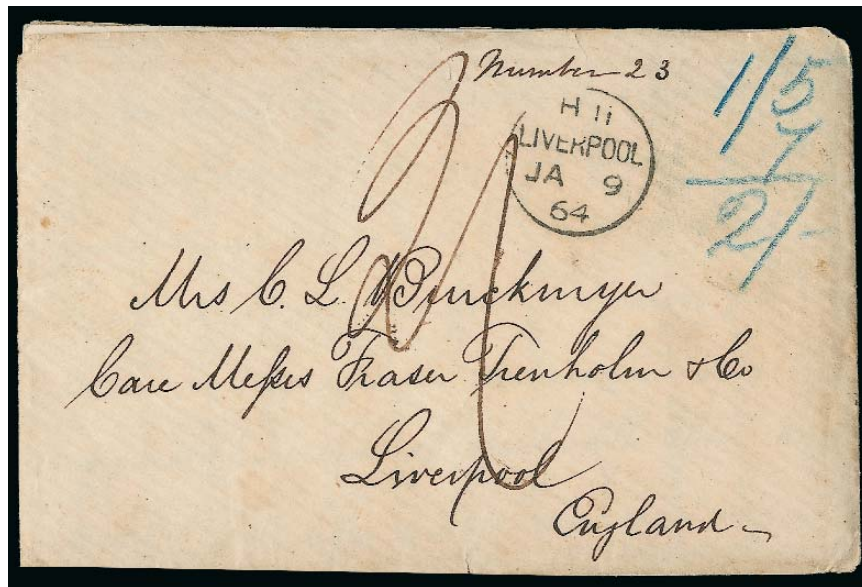 Number 23
1/5
7
2/-
H 11
LIVERPOOL
JA 9
64
Mrs C. L. Burckmyer
Care Messrs Fraser Trenholm & Co
Liverpool
England